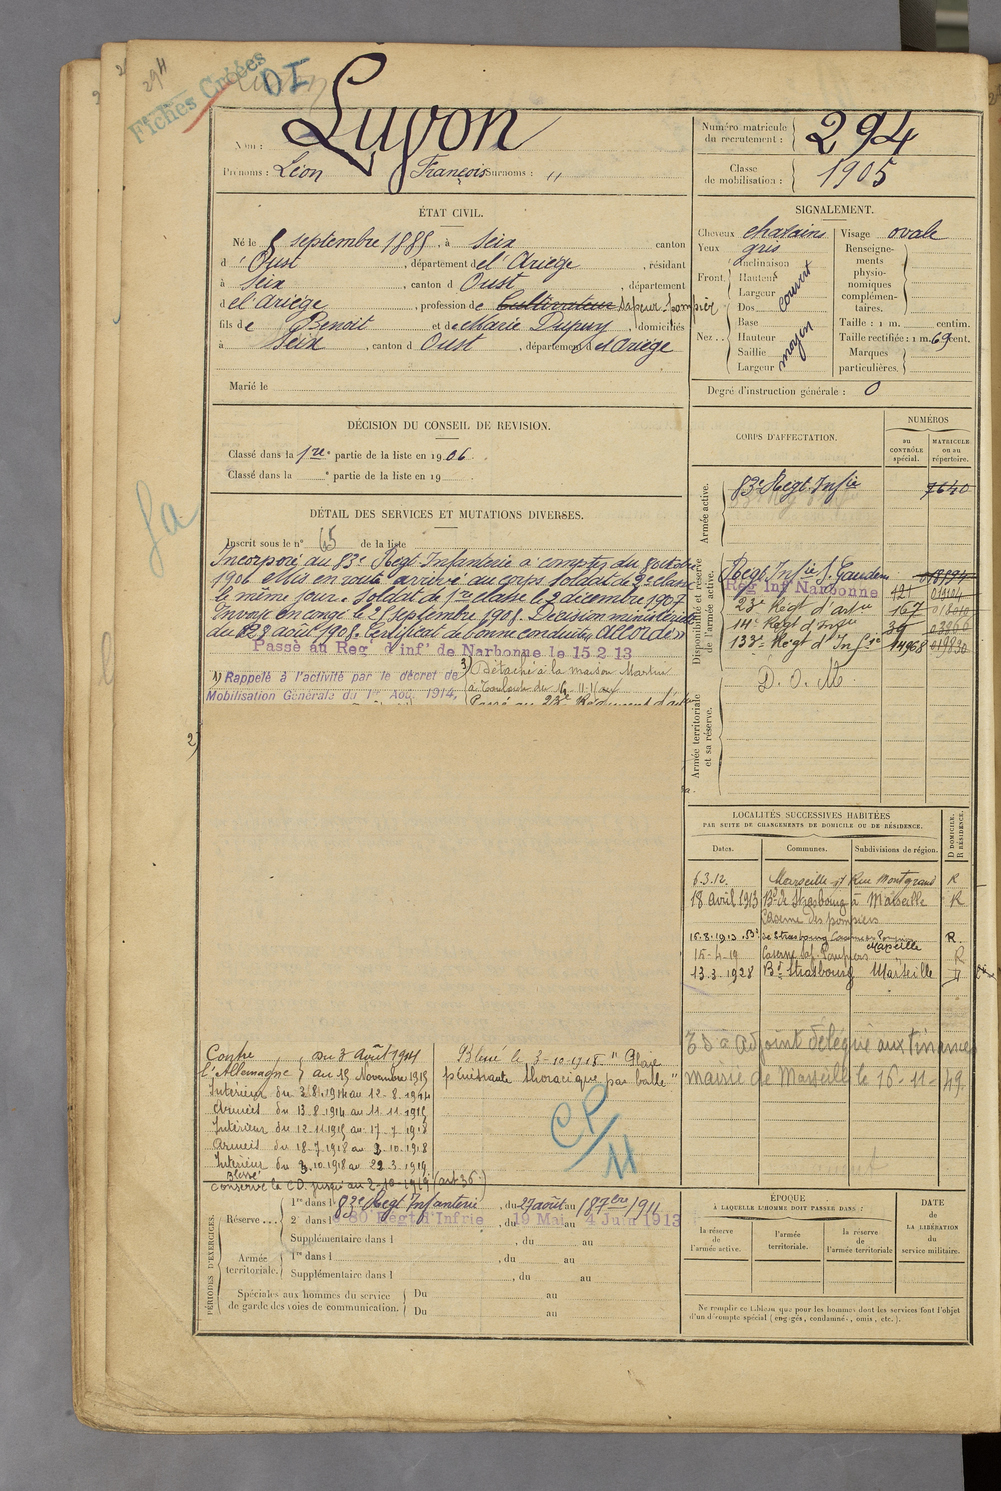 294
Fiches Créées
DI
Nom : Luyon
Prénoms : Léon François Surnoms : "
Numéro matricule du recrutement : 294
Classe de mobilisation : 1905
ÉTAT CIVIL.
Né le 8 septembre 1885, à Seix canton
d'Oust, département de l'Ariège, résidant
à Seix, canton d Oust, département
de l'ariège, profession de Cultivateur Sapeur pompier
fils de Benoit et de Marie Dupuy, domiciliés
à Seix, canton d Oust, département d el'Ariège
Marié le
SIGNALEMENT.
Cheveux chatains
Yeux gris
Front. Inclinaison
Hauteur
Largeur
couvert
Nez.. Dos
Base
Hauteur
Saillie
Largeur
moyen
Visage ovale
Renseignements physionomiques complémentaires.
Taille : 1 m. centim.
Taille rectifiée : 1 m. 69 cent.
Marques particulières.
Degré d'instruction générale : 0
DÉCISION DU CONSEIL DE REVISION.
Classé dans la 1re partie de la liste en 1906.
Classé dans la e partie de la liste en 19
DÉTAIL DES SERVICES ET MUTATIONS DIVERSES.
Inscrit sous le n° 65 de la liste
Incorporé au 83e Régt Infanterie à compter du 8 octobre
1906 et mis en route arrivé au corps. Soldat de 2e classe
le même jour. Soldat de 1re classe le 2 décembre 1907
Envoyé en congé le 25 septembre 1908. Décision ministérielle
du 22 août 1908. Certificat de bonne conduite "Accordé"
Passé au Reg d'inf' de Narbonne le 15 2 13
1) Rappelé à l'activité par le décret de
Mobilisation Générale du 1er Aoû. 1914.
3) Détaché à la maison Martin
à Toulouse du 16-11-1
Passé au 23e Régiment d'
2)
CORPS D'AFFECTATION.
NUMÉROS
au CONTRÔLE spécial.
MATRICULE ou au répertoire.
Armée active.
83e Régt Infie 7640
Disponibilité et réserve de l'armée active.
Régt Infie St Gaudens
Reg Inf Narbonne 121 01904
23e Régt d'artie 167
14e Régt d'Infie 36
133e Régt d'Infie 14968
Armée territoriale et sa réserve.
D. O. M.
LOCALITÉS SUCCESSIVES HABITÉES
PAR SUITE DE CHANGEMENTS DE DOMICILE OU DE RÉSIDENCE.
Dates. Communes. Subdivisions de région. D DOMICILE. R RÉSIDENCE.
6.3.12. Marseille 27 Rue Montgrand R
18 avril 1913 Bd de Strasbourg à Marseille R
Caserne des pompiers
16.8.1913 Bd de Strasbourg Caserne des Pompiers Marseille R.
15-4-19 Caserne Sap. Pompiers R
13.3.1928 Bd Strasbourg Marseille D
adjoint délégué aux finances
mairie de Marseille le 16-11-49.
Contre l'Allemagne du 3 Août 1914
au 15 Novembre 1915
Intérieur du 3.8.1914 au 12-8-1914
Armées du 13.8.1914 au 11.11.1915
Intérieur du 12-11-1915 au 17-7-1918
Armées du 18-7-1918 au 2-10-1918
Intérieur du 3.10.1918 au 22.3.1919
Blessé
conservé le CD. jusqu'au 2-10-1919 (art 36.)
Blessé le 3-10-1918 "Plaie
pénétrante thoracique par balle"
CP/11
PÉRIODES D'EXERCICES.
Réserve... 1re dans l 83e Régt Infanterie, du 27 août au 18 7bre 1911
2e dans l 80 Régt d'Infrie, du 19 Mai au 4 Juin 1913
Supplémentaire dans l , du au
Armée territoriale. 1re dans l , du au
Supplémentaire dans l , du au
Spéciales aux hommes du service de garde des voies de communication. Du au
Du au
ÉPOQUE
À LAQUELLE L'HOMME DOIT PASSER DANS :
la réserve de l'armée active.
l'armée territoriale.
la réserve de l'armée territoriale
DATE DE LA LIBÉRATION du service militaire.
Ne remplir ce tableau que pour les hommes dont les services font l'objet
d'un décompte spécial (engagés, condamnés, omis, etc.).